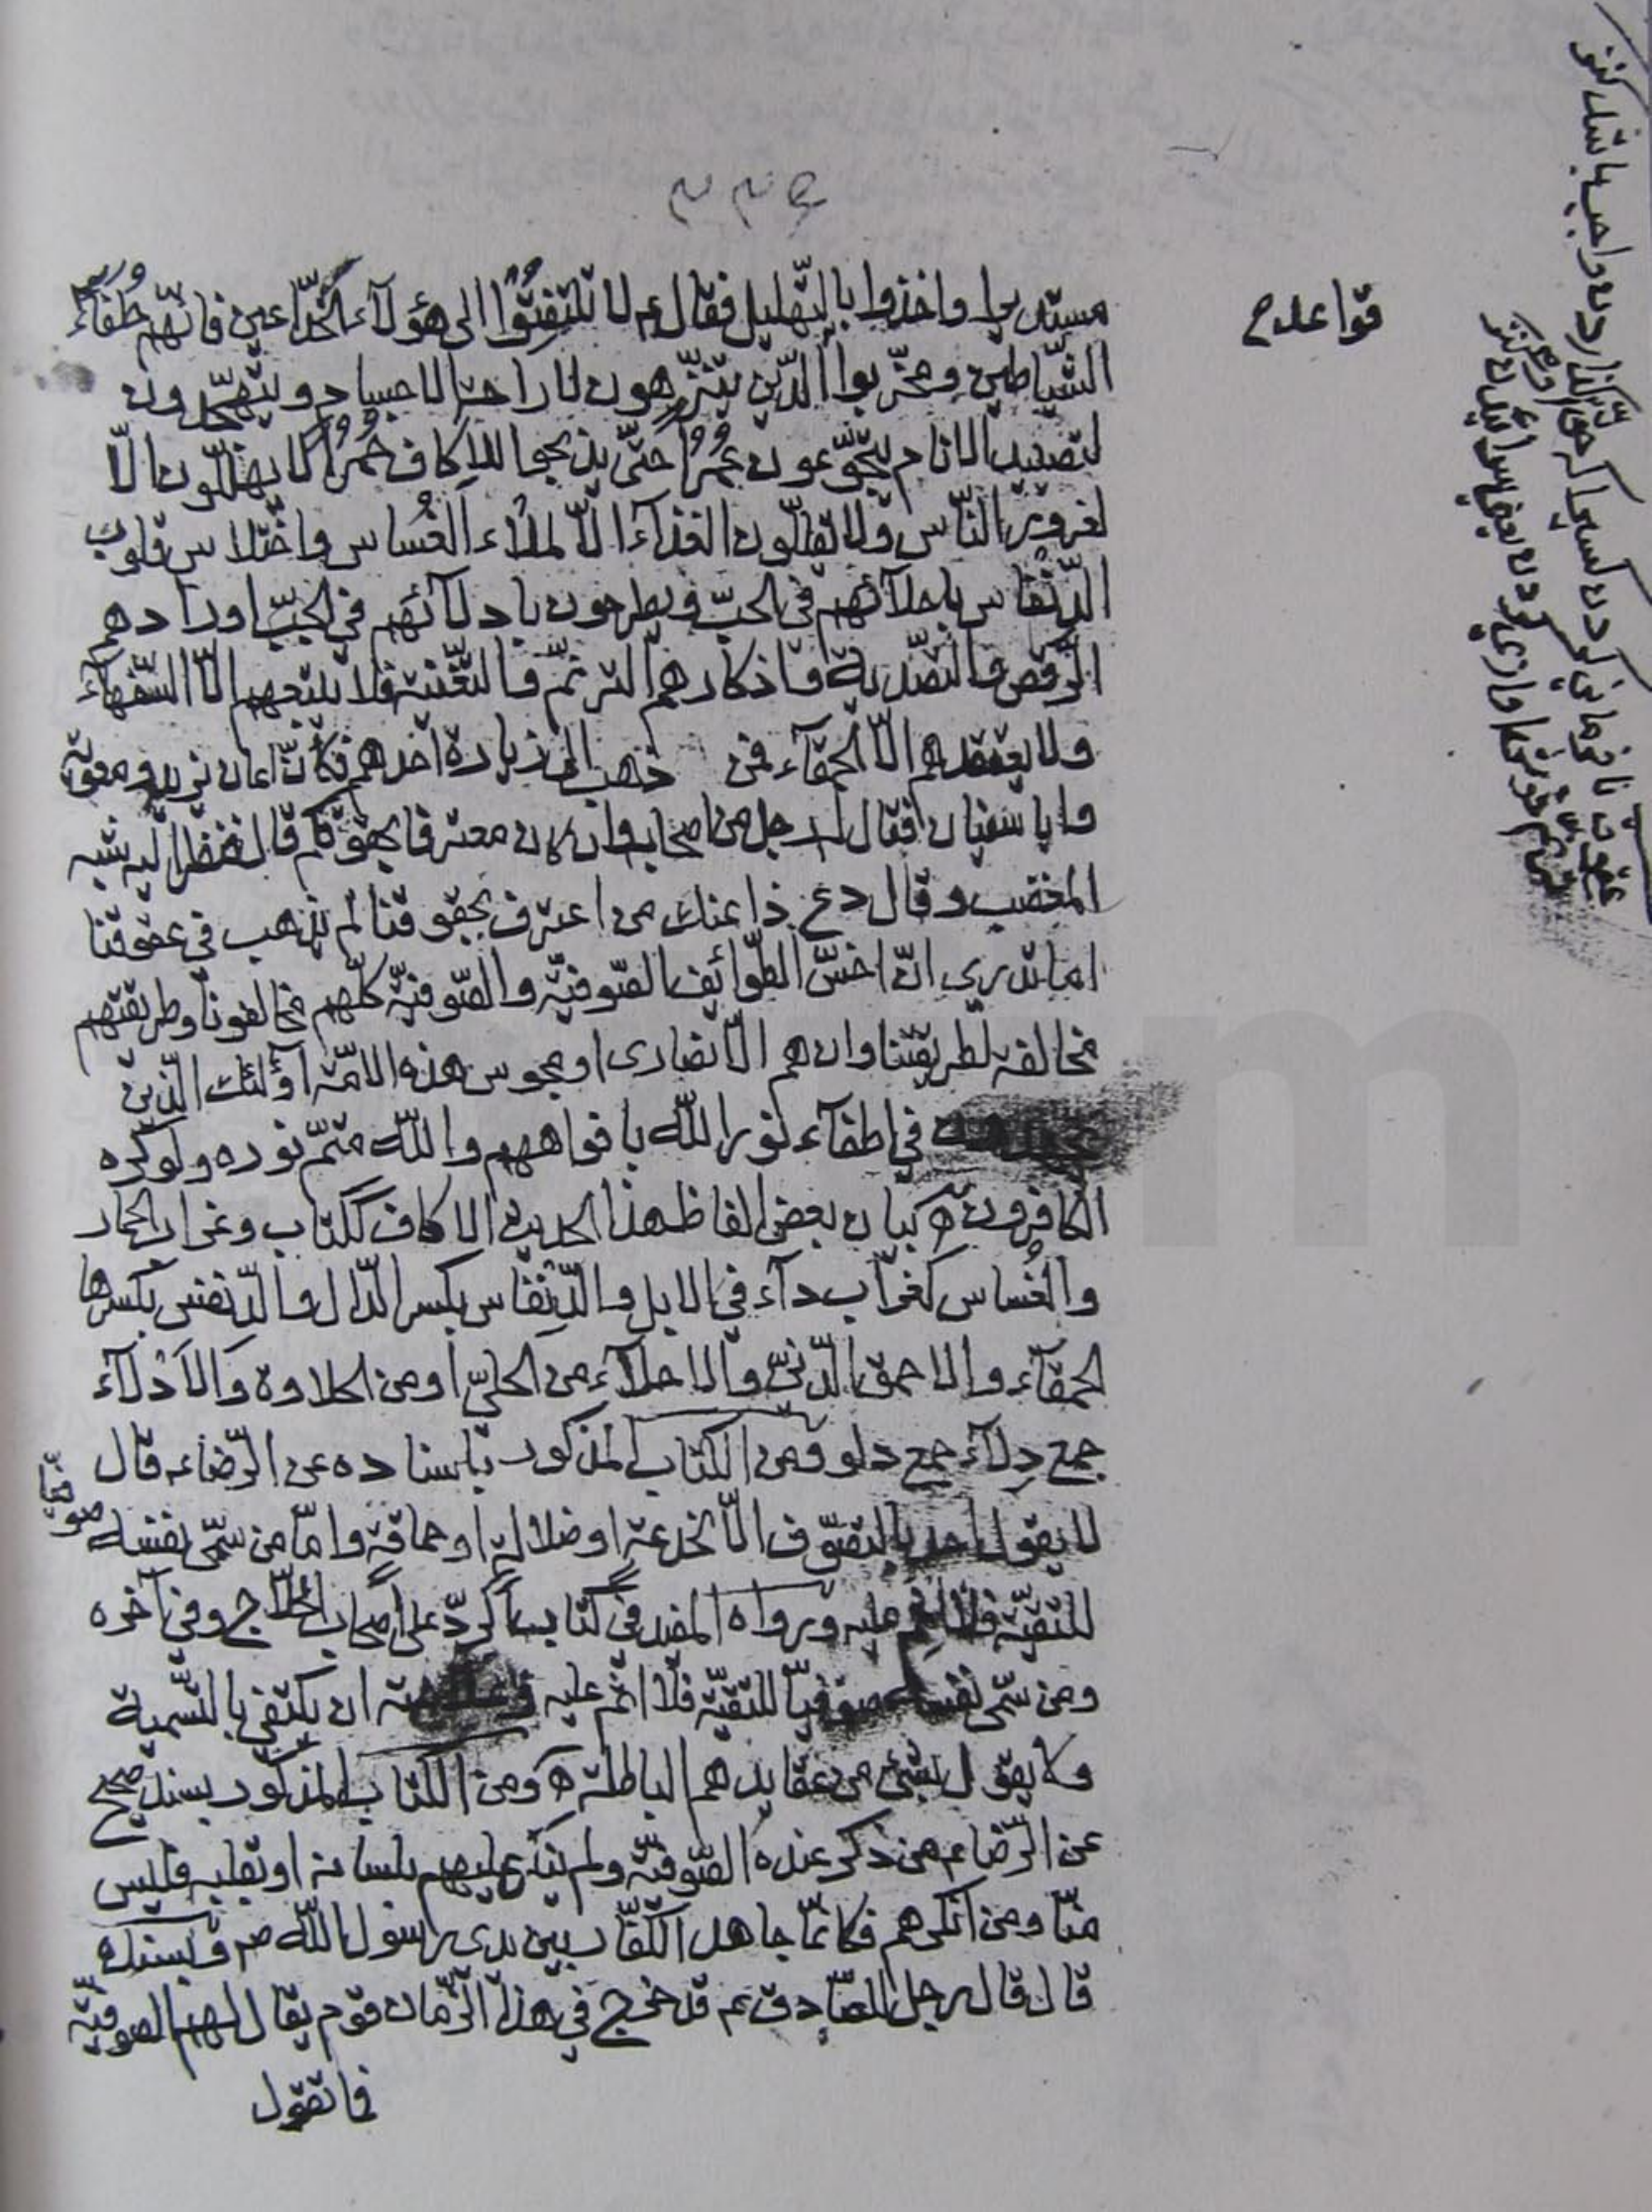 مستديرا واخذوا بالتهليل فقال ع لا تلتفتوا الى هؤلآء الخدّاعين فانّهم خلفاء
قواعد ح
الشّياطين ومخرّبوا الدّين يتزهّدون لاراحة الاجسام ويتهجّدون
لتصييد الانام يتجوّعون عُمُراً حتّى يذبحوا للاكاف حُمُراً لا يهلّلون الّا
لغرور النّاس ولا يقلّلون الغذآء الّا لملاء العُساس واختلاس قلوب
الدّنفاس باحلآئهم فى الحبّ ويطرحون بادلآئهم في الجبّ اورادهم
الرّقص والتصدية واذكارهم الترنّم والتغنية فلا يتبعهم الّا السّفهآء
ولا يعتقدهم الّا الحمقآء فمن ذهب الى زيارة احدهم فكأنّما اعان يزيد ومعوية
وابا سفيان فقال له رجل من اصحابه وان كان معترفا بحقوقكم قال فنظر اليه شبه
المغضب وقال دع ذا عنك من اعترف بحقوقنا لم يذهب في عقوقنا
اما تدرى انّ اخسّ الطّوائف الصّوفيّة والصّوفيّة كلّهم مخالفونا وطريقتهم
مخالفة لطريقتنا وان هم الّا نصارى او مجوس هذه الامّة اولئك الّذين
في اطفآء نور اللّه بافواههم واللّه متمّ نوره ولو كره
الكافرون ه بيان بعض الفاظ هذا الحديث الاكاف ككتاب وغراب الحمار
والعُساس كغراب دآء في الابل والدّنفاس بكسر الدّال والدّنفس بكسرها
الحمقآء والاحمق الدّنىّ والاحلآء من الحلىّ او من الحلاوة والادلآء
جمع دِلآء جمع دلو ومن الكتاب المذكور باسناده عن الرّضاء ع قال
لا يقول احد بالتصوّف الّا لخدعة او ضلالة او حماقة وامّا من سمّى نفسه صوفيّا
للتقيّة فلا اثم عليه ورواه المفيد في كتاب الردّ على اصحاب الحلّاج وفى آخره
ومن سمّى نفسه صوفيّا للتقيّة فلا اثم عليه وعلامته ان يكتفي بالتّسمية
ولا يقول بشئ من عقايدهم الباطلة ه ومن الكتاب المذكور بسند صحيح
عن الرّضا ع من ذكر عنده الصّوفيّة ولم ينكر عليهم بلسانه او بقلبه فليس
منّا ومن انكرهم فكانّما جاهد الكفّار بين يدى رسول اللّه ص وبسنده
قال قال رجل للصّادق ع قد خرج في هذا الزّمان قوم يقال لهم الصوفيّة
فما تقول